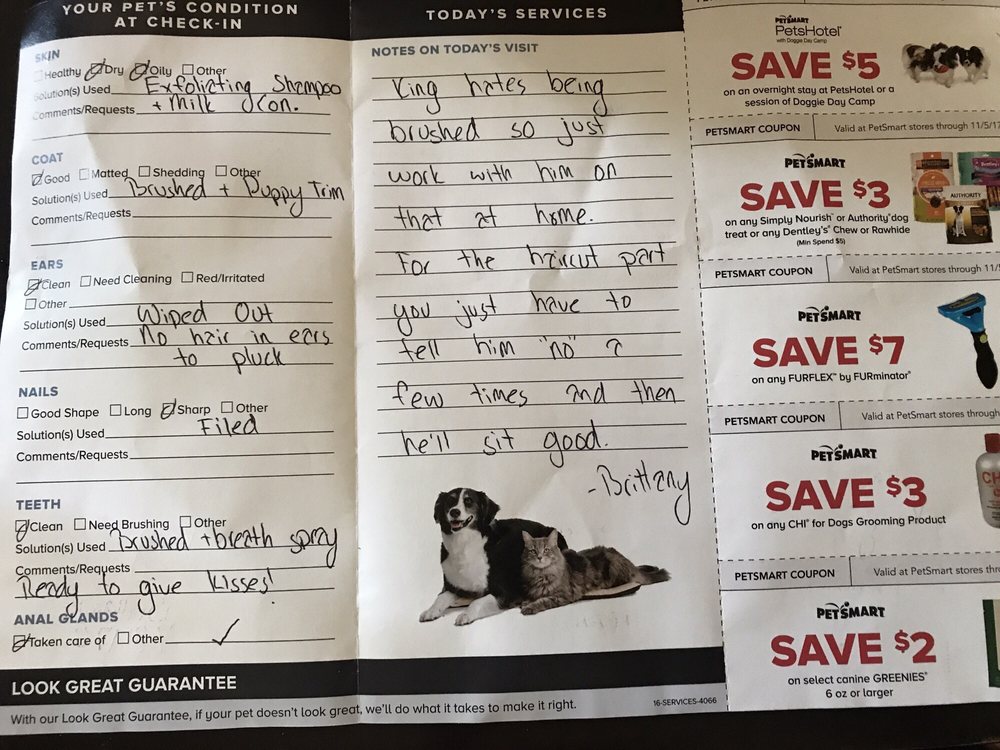 YOUR PET'S CONDITION
AT CHECK-IN
SKIN
Healthy Dry Oily Other
Solution(s) Used Exfoliating Shampoo
Comments/Requests + Milk Con.
COAT
Good Matted Shedding Other
Solution(s) Used Brushed + Puppy Trim
Comments/Requests
EARS
Clean Need Cleaning Red/Irritated
Other
Solution(s) Used Wiped Out
Comments/Requests No hair in ears
to pluck
NAILS
Good Shape Long Sharp Other
Solution(s) Used Filed
Comments/Requests
TEETH
Clean Need Brushing Other
Solution(s) Used Brushed + breath spray
Comments/Requests
Ready to give kisses!
ANAL GLANDS
Taken care of Other
LOOK GREAT GUARANTEE
With our Look Great Guarantee, if your pet doesn't look great, we'll do what it takes to make it right.
16-SERVICES-4066
TODAY'S SERVICES
NOTES ON TODAY'S VISIT
King hates being
brushed so just
work with him on
that at home.
For the haircut part
you just have to
tell him "no" a
few times and then
he'll sit good.
-Brittany
PETSMART
PetsHotel
with Doggie Day Camp
SAVE $5
on an overnight stay at PetsHotel or a
session of Doggie Day Camp
PETSMART COUPON Valid at PetSmart stores through 11/5/17
PETSMART
SAVE $3
on any Simply Nourish™ or Authority® dog
treat or any Dentley's® Chew or Rawhide
(Min Spend $5)
AUTHORITY
PETSMART COUPON Valid at PetSmart stores through 11/5
PETSMART
SAVE $7
on any FURFLEX™ by FURminator®
PETSMART COUPON Valid at PetSmart stores through
PETSMART
SAVE $3
on any CHI® for Dogs Grooming Product
CH
PETSMART COUPON Valid at PetSmart stores thr
PETSMART
SAVE $2
on select canine GREENIES®
6 oz or larger